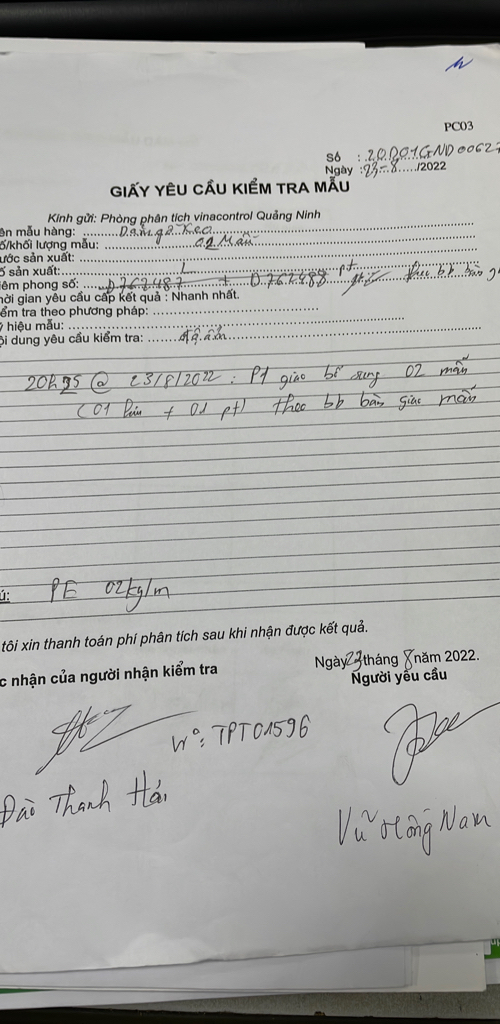 PC03
Số : 20D01GND00627
Ngày : 23-8...../2022
GIẤY YÊU CẦU KIỂM TRA MẪU
Kính gửi: Phòng phân tích vinacontrol Quảng Ninh
ên mẫu hàng:
ố/khối lượng mẫu: 02 Mẫu
ước sản xuất:
ố sản xuất:
iêm phong số: 0.762487 + 0.762488 pt theo bb bàn
hời gian yêu cầu cấp kết quả : Nhanh nhất.
iểm tra theo phương pháp:
ý hiệu mẫu:
ội dung yêu cầu kiểm tra: độ ẩm
20h35 @ 23/8/2022: P1 giao bổ sung 02 mẫu
(01 lưu + 01 pt) theo bb bàn giao mẫu
ú: PE 02kg/m
tôi xin thanh toán phí phân tích sau khi nhận được kết quả.
Ngày 23 tháng 8 năm 2022.
c nhận của người nhận kiểm tra
Người yêu cầu
Nº: TPT01596
Đào Thanh Hải
Vũ Hồng Nam